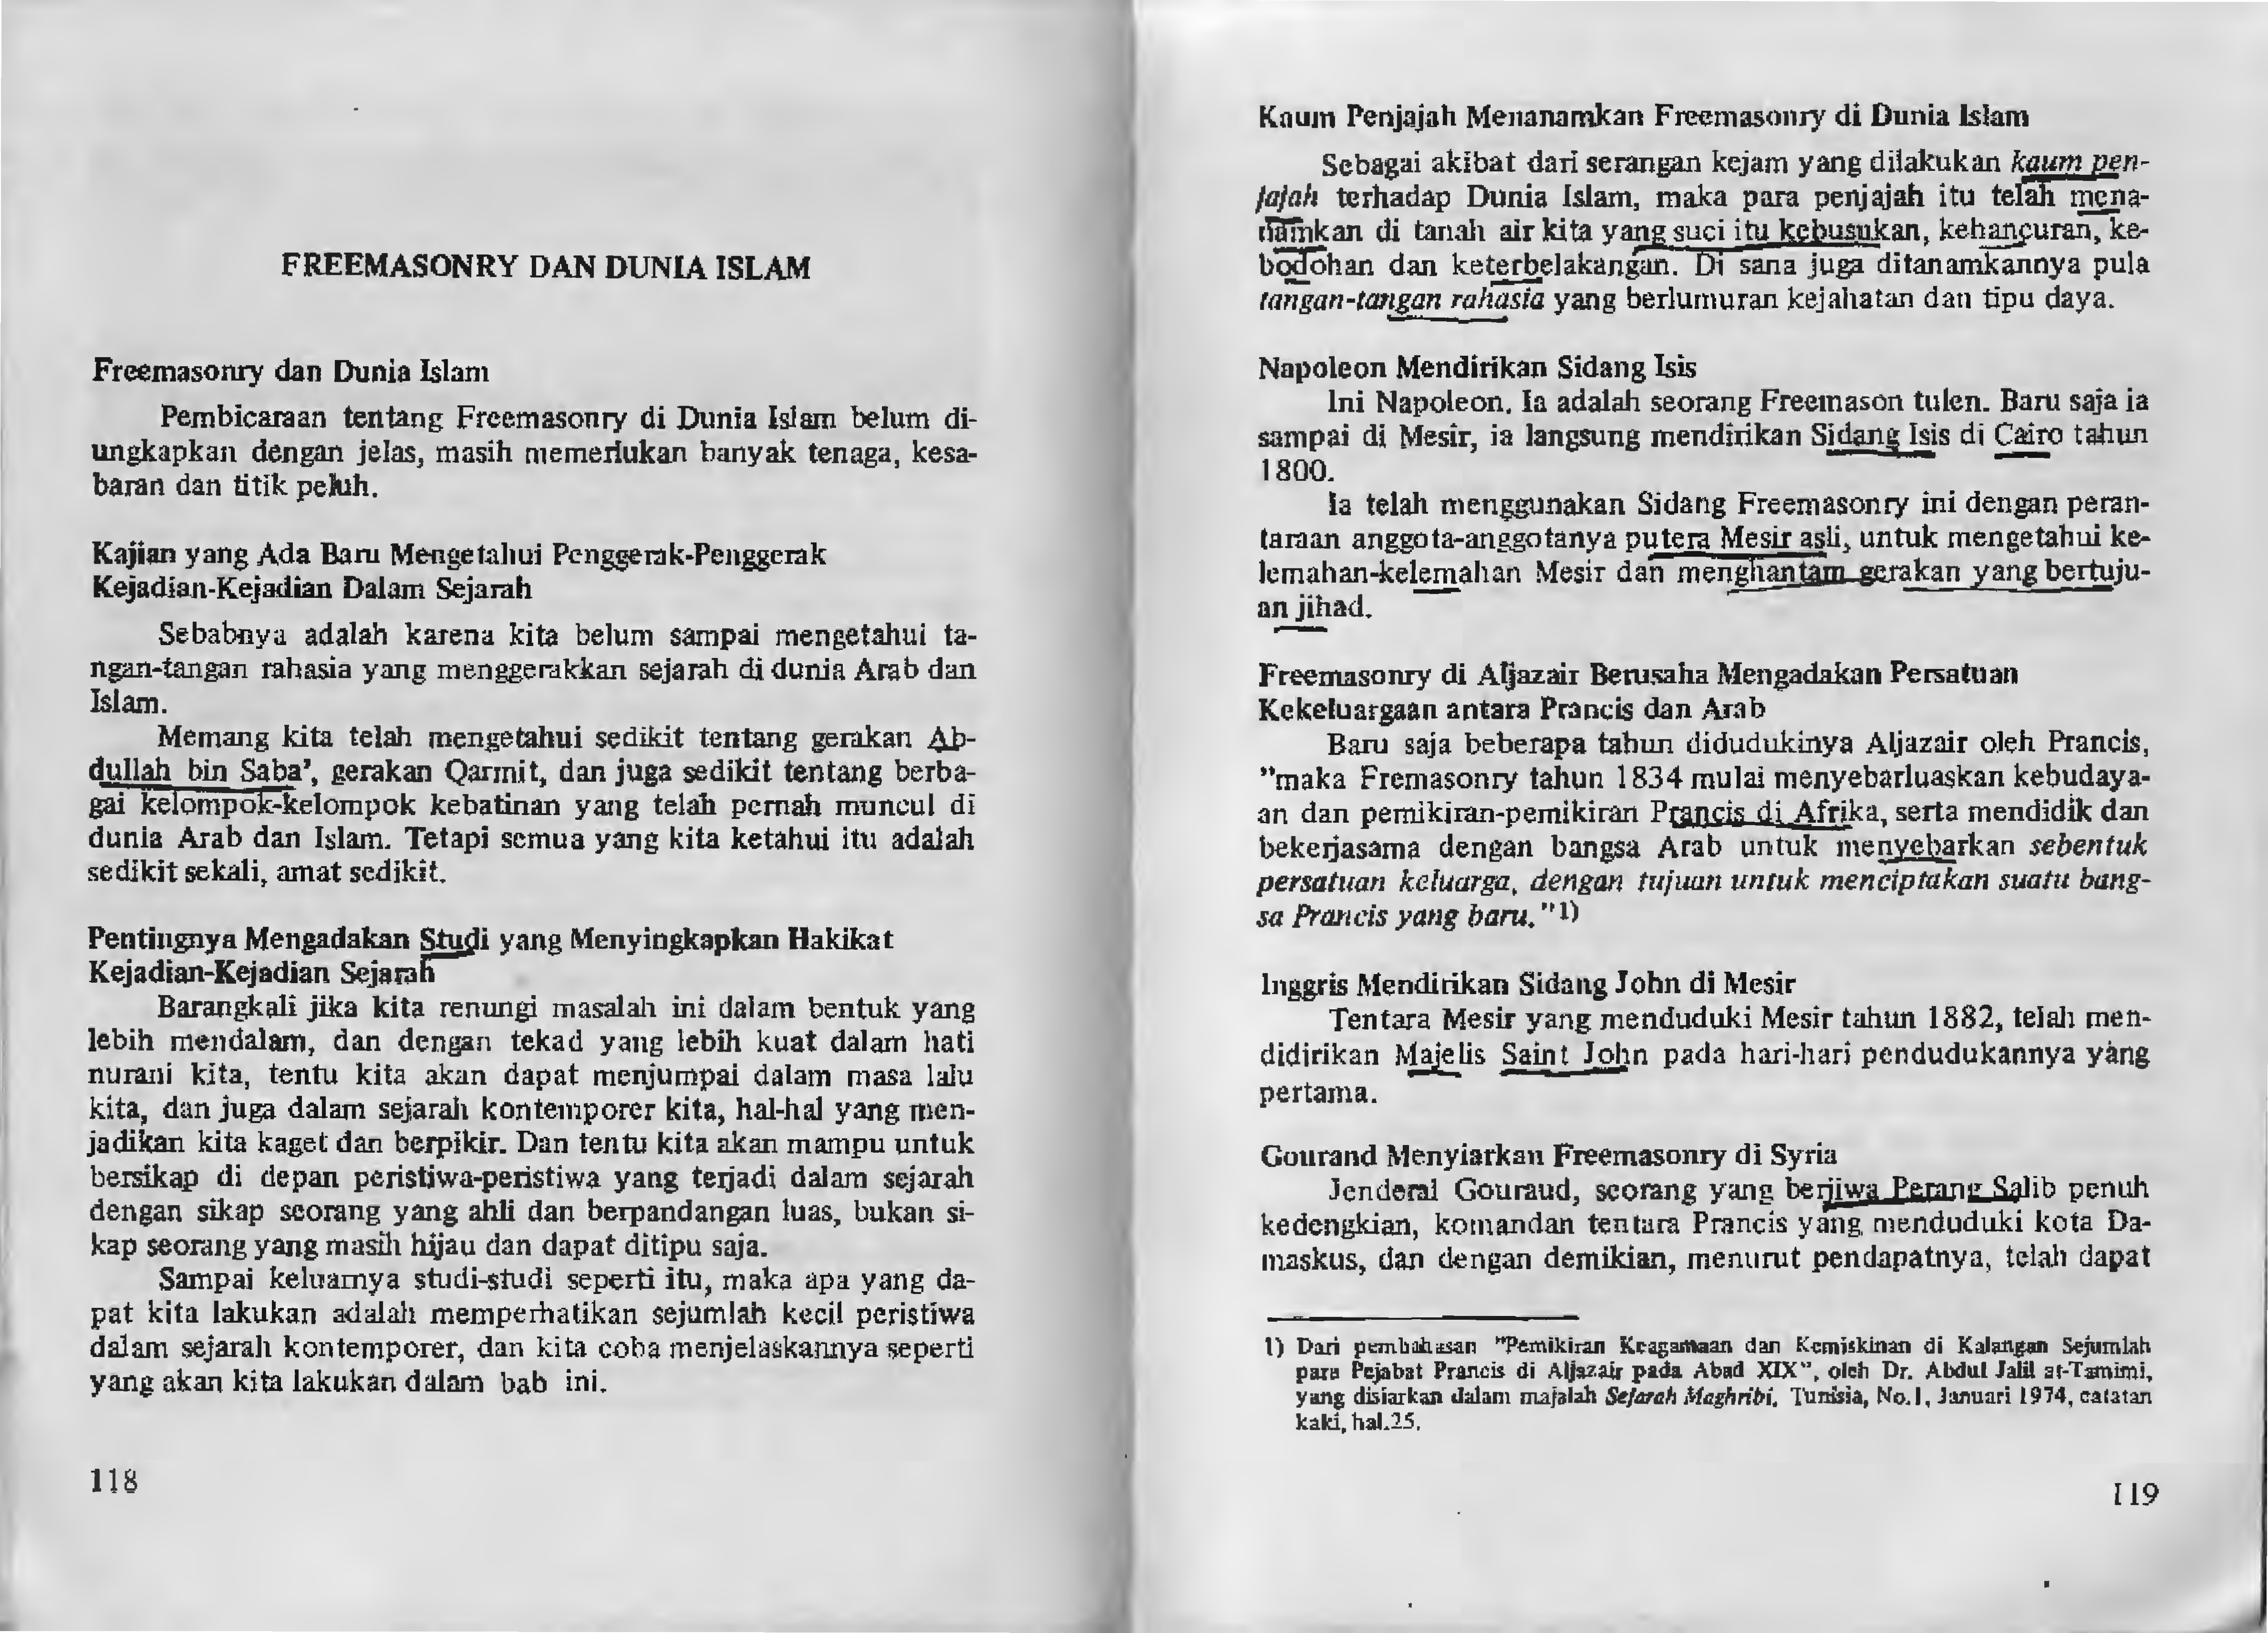 FREEMASONRY DAN DUNIA ISLAM
Freemasonry dan Dunia Islam
Pembicaraan tentang Freemasonry di Dunia Islam belum di-
ungkapkan dengan jelas, masih memerlukan banyak tenaga, kesa-
baran dan titik peluh.
Kajian yang Ada Baru Mengetahui Penggerak-Penggerak
Kejadian-Kejadian Dalam Sejarah
Sebabnya adalah karena kita belum sampai mengetahui ta-
ngan-tangan rahasia yang menggerakkan sejarah di dunia Arab dan
Islam.
Memang kita telah mengetahui sedikit tentang gerakan Ab-
dullah bin Saba', gerakan Qarmit, dan juga sedikit tentang berba-
gai kelompok-kelompok kebatinan yang telah pernah muncul di
dunia Arab dan Islam. Tetapi semua yang kita ketahui itu adalah
sedikit sekali, amat sedikit.
Pentingnya Mengadakan Studi yang Menyingkapkan Hakikat
Kejadian-Kejadian Sejarah
Barangkali jika kita renungi masalah ini dalam bentuk yang
lebih mendalam, dan dengan tekad yang lebih kuat dalam hati
nurani kita, tentu kita akan dapat menjumpai dalam masa lalu
kita, dan juga dalam sejarah kontemporer kita, hal-hal yang men-
jadikan kita kaget dan berpikir. Dan tentu kita akan mampu untuk
bersikap di depan peristiwa-peristiwa yang terjadi dalam sejarah
dengan sikap seorang yang ahli dan berpandangan luas, bukan si-
kap seorang yang masih hijau dan dapat ditipu saja.
Sampai keluarnya studi-studi seperti itu, maka apa yang da-
pat kita lakukan adalah memperhatikan sejumlah kecil peristiwa
dalam sejarah kontemporer, dan kita coba menjelaskannya seperti
yang akan kita lakukan dalam bab ini.
118
Kaum Penjajah Menanamkan Freemasonry di Dunia Islam
Sebagai akibat dari serangan kejam yang dilakukan kaum pen-
jajah terhadap Dunia Islam, maka para penjajah itu telah mena-
namkan di tanah air kita yang suci itu kebusukan, kehancuran, ke-
bodohan dan keterbelakangan. Di sana juga ditanamkannya pula
tangan-tangan rahasia yang berlumuran kejahatan dan tipu daya.
Napoleon Mendirikan Sidang Isis
Ini Napoleon. Ia adalah seorang Freemason tulen. Baru saja ia
sampai di Mesir, ia langsung mendirikan Sidang Isis di Cairo tahun
1800.
Ia telah menggunakan Sidang Freemasonry ini dengan peran-
taraan anggota-anggotanya putera Mesir asli, untuk mengetahui ke-
lemahan-kelemahan Mesir dan menghantam gerakan yang bertuju-
an jihad.
Freemasonry di Aljazair Berusaha Mengadakan Persatuan
Kekeluargaan antara Prancis dan Arab
Baru saja beberapa tahun didudukinya Aljazair oleh Prancis,
"maka Fremasonry tahun 1834 mulai menyebarluaskan kebudaya-
an dan pemikiran-pemikiran Prancis di Afrika, serta mendidik dan
bekerjasama dengan bangsa Arab untuk menyebarkan sebentuk
persatuan keluarga, dengan tujuan untuk menciptakan suatu bang-
sa Prancis yang baru."1)
Inggris Mendirikan Sidang John di Mesir
Tentara Mesir yang menduduki Mesir tahun 1882, telah men-
didirikan Majelis Saint John pada hari-hari pendudukannya yang
pertama.
Gourand Menyiarkan Freemasonry di Syria
Jenderal Gouraud, seorang yang berjiwa Perang Salib penuh
kedengkian, komandan tentara Prancis yang menduduki kota Da-
maskus, dan dengan demikian, menurut pendapatnya, telah dapat
1) Dari pembahasan "Pemikiran Keagamaan dan Kemiskinan di Kalangan Sejumlah
para Pejabat Prancis di Aljazair pada Abad XIX", oleh Dr. Abdul Jalil at-Tamimi,
yang disiarkan dalam majalah Sejarah Maghribi, Tunisia, No.1, Januari 1974, catatan
kaki, hal.25.
119